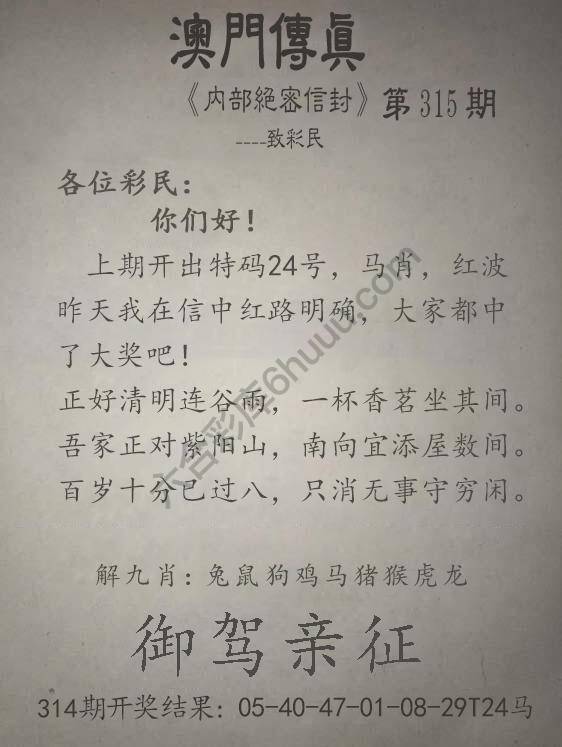 澳門傳真
《内部絕密信封》第315期
----致彩民
各位彩民：
你们好！
上期开出特码24号，马肖，红波
昨天我在信中红路明确，大家都中
了大奖吧！
正好清明连谷雨，一杯香茗坐其间。
吾家正对紫阳山，南向宜添屋数间。
百岁十分已过八，只消无事守穷闲。
六合彩库6huuu.com
解九肖：兔鼠狗鸡马猪猴虎龙
御驾亲征
314期开奖结果：05-40-47-01-08-29T24马